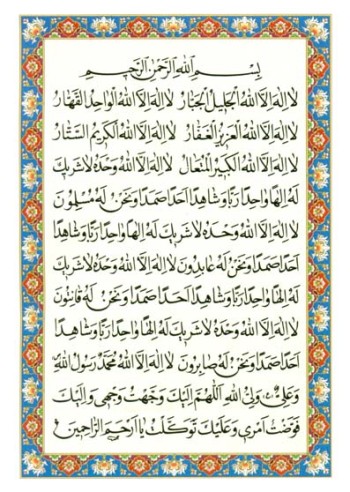 بِسْمِ اللهِ الرَّحْمٰنِ الرَّحِيمِ
لا اِلٰهَ اِلَّا اللهُ الْجَلِيلُ الْجَبَّارُ لا اِلٰهَ اِلَّا اللهُ الْواحِدُ الْقَهَّارُ
لا اِلٰهَ اِلَّا اللهُ الْعَزِيزُ الْغَفَّارُ لا اِلٰهَ اِلَّا اللهُ الْكَرِيمُ السَّتَّارُ
لا اِلٰهَ اِلَّا اللهُ الْكَبِيرُ الْمُتَعالُ لا اِلٰهَ اِلَّا اللهُ وَحْدَهُ لا شَرِيكَ
لَهُ اِلٰهًا واحِدًا رَبًّا وَشاهِدًا اَحَدًا صَمَدًا وَنَحْنُ لَهُ مُسْلِمُونَ
لا اِلٰهَ اِلَّا اللهُ وَحْدَهُ لا شَرِيكَ لَهُ اِلٰهًا واحِدًا رَبًّا وَشاهِدًا
اَحَدًا صَمَدًا وَنَحْنُ لَهُ عابِدُونَ لا اِلٰهَ اِلَّا اللهُ وَحْدَهُ لا شَرِيكَ
لَهُ اِلٰهًا واحِدًا رَبًّا وَشاهِدًا اَحَدًا صَمَدًا وَنَحْنُ لَهُ قانِتُونَ
لا اِلٰهَ اِلَّا اللهُ وَحْدَهُ لا شَرِيكَ لَهُ اِلٰهًا واحِدًا رَبًّا وَشاهِدًا
اَحَدًا صَمَدًا وَنَحْنُ لَهُ صابِرُونَ لا اِلٰهَ اِلَّا اللهُ مُحَمَّدٌ رَسُولُ اللهِ
وَعَلِيٌّ وَلِيُّ اللهِ اَللّٰهُمَّ اِلَيْكَ وَجَّهْتُ وَجْهِي وَاِلَيْكَ
فَوَّضْتُ اَمْرِي وَعَلَيْكَ تَوَكَّلْتُ يا اَرْحَمَ الرَّاحِمِينَ